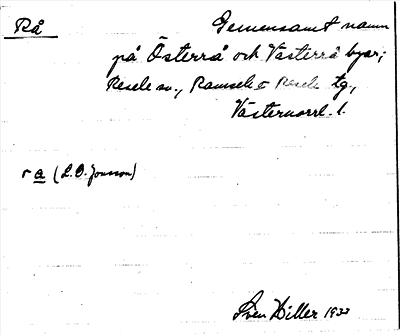 Rå
Gemensamt namn
på Österrå och Västerrå byar;
Resele sn., Ramsele o Resele tg.,
Västernorrl. l.
r a (L.O. Jonsson)
Sven Hiller 1933